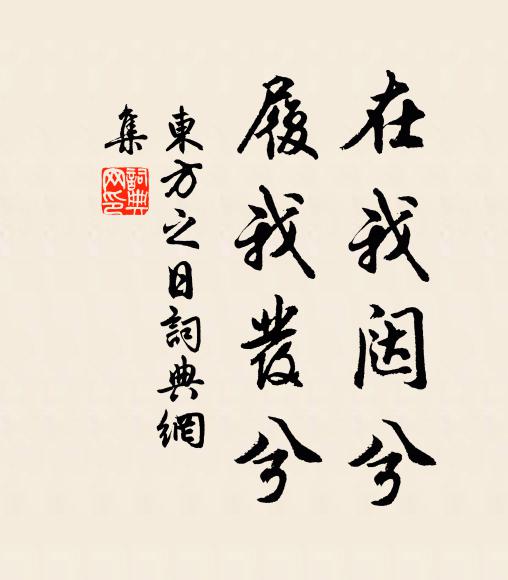 在我闼兮
履我發兮
東方之日詞典網
集
詞典
网印